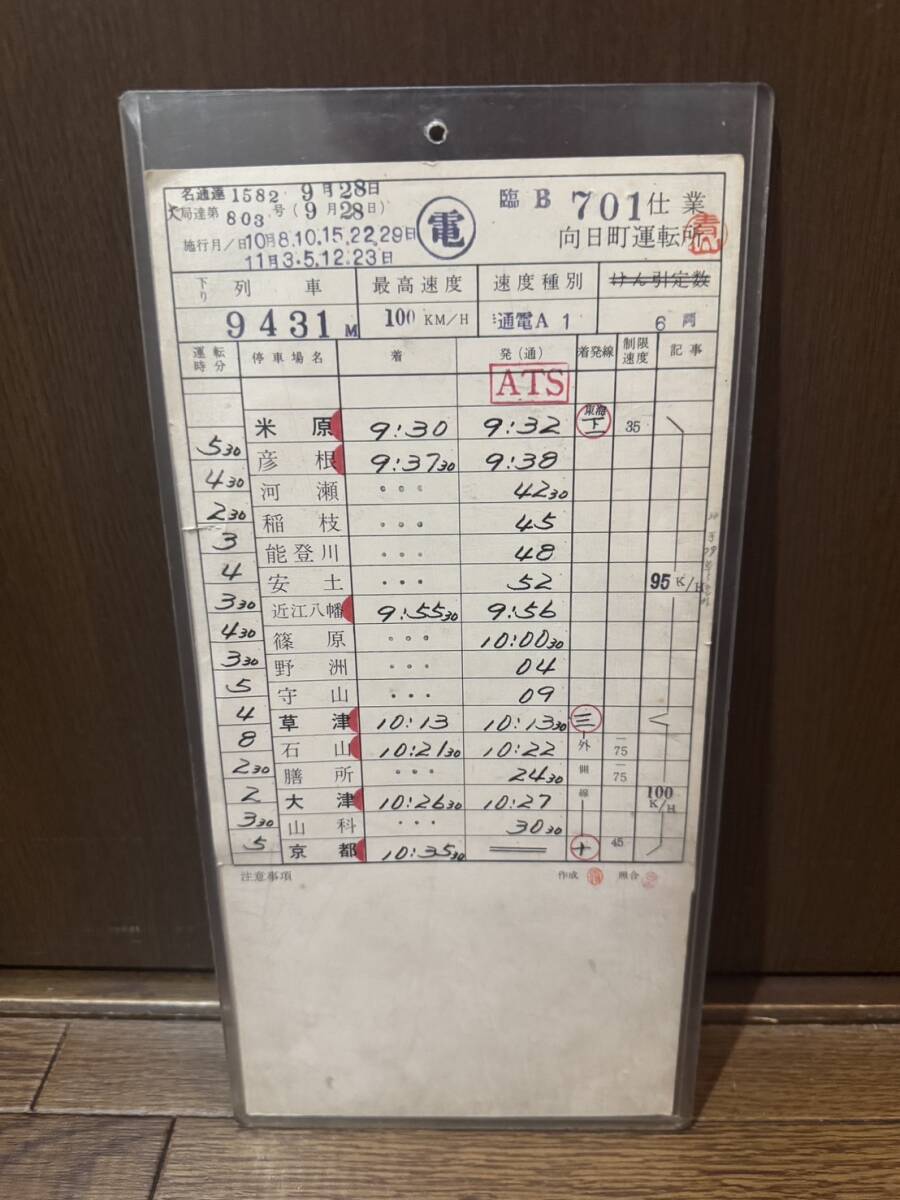 名通達 1582 9月28日
大局達第803号(9月28日)
施行月/日 10月8.10.15.22.29日
11月3.5.12.23日
電
臨B 701仕業
向日町運転所
下り 列車 最高速度 速度種別 けん引定数
9431M 100 KM/H 通電A1 6両
運転時分 停車場名 着 発(通) 着発線 制限速度 記事
ATS
米原 9:30 9:32 東海下一 35
5 30
彦根 9:37 30 9:38
4 30
河瀬 ・・・ 42 30
2 30
稲枝 ・・・ 45
3
能登川 ・・・ 48
4
安土 ・・・ 52 95 K/H
3 30
近江八幡 9:55 30 9:56
4 30
篠原 ・・・ 10:00 30
3 30
野洲 ・・・ 04
5
守山 ・・・ 09
4
草津 10:13 10:13 30 三
8
石山 10:21 30 10:22 外 75
2 30
膳所 ・・・ 24 30 側 75
2
大津 10:26 30 10:27 線 100 K/H
3 30
山科 ・・・ 30 30
5
京都 10:35 30 十 45
注意事項 作成 照合